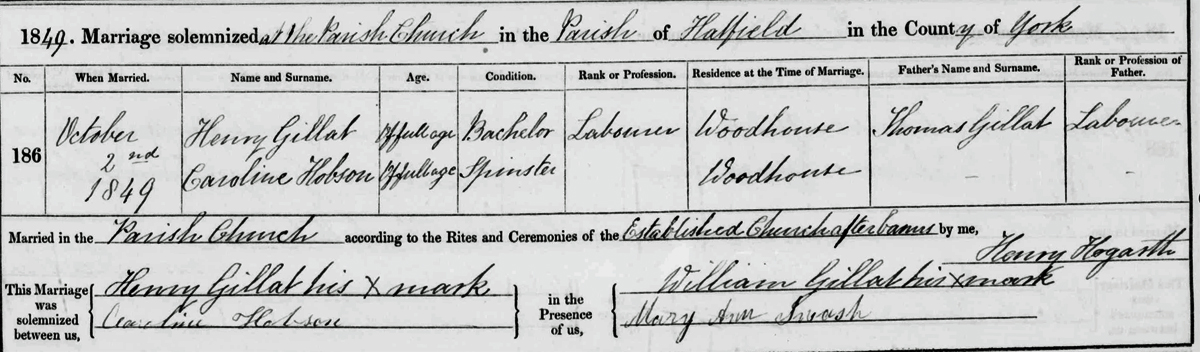 1849. Marriage solemnized at the Parish Church in the Parish of Hatfield in the County of York
No. When Married. Name and Surname. Age. Condition. Rank or Profession. Residence at the Time of Marriage. Father's Name and Surname. Rank or Profession of Father.
186 October 2nd 1849 Henry Gillat Of full age Bachelor Labourer Woodhouse Thomas Gillat Labourer
Caroline Hobson Of full age Spinster Woodhouse - -
Married in the Parish Church according to the Rites and Ceremonies of the Established Church after banns by me,
Henry Hogarth
This Marriage was solemnized between us, Henry Gillat his X mark in the Presence of us, William Gillat his X mark
Caroline Hobson Mary Ann